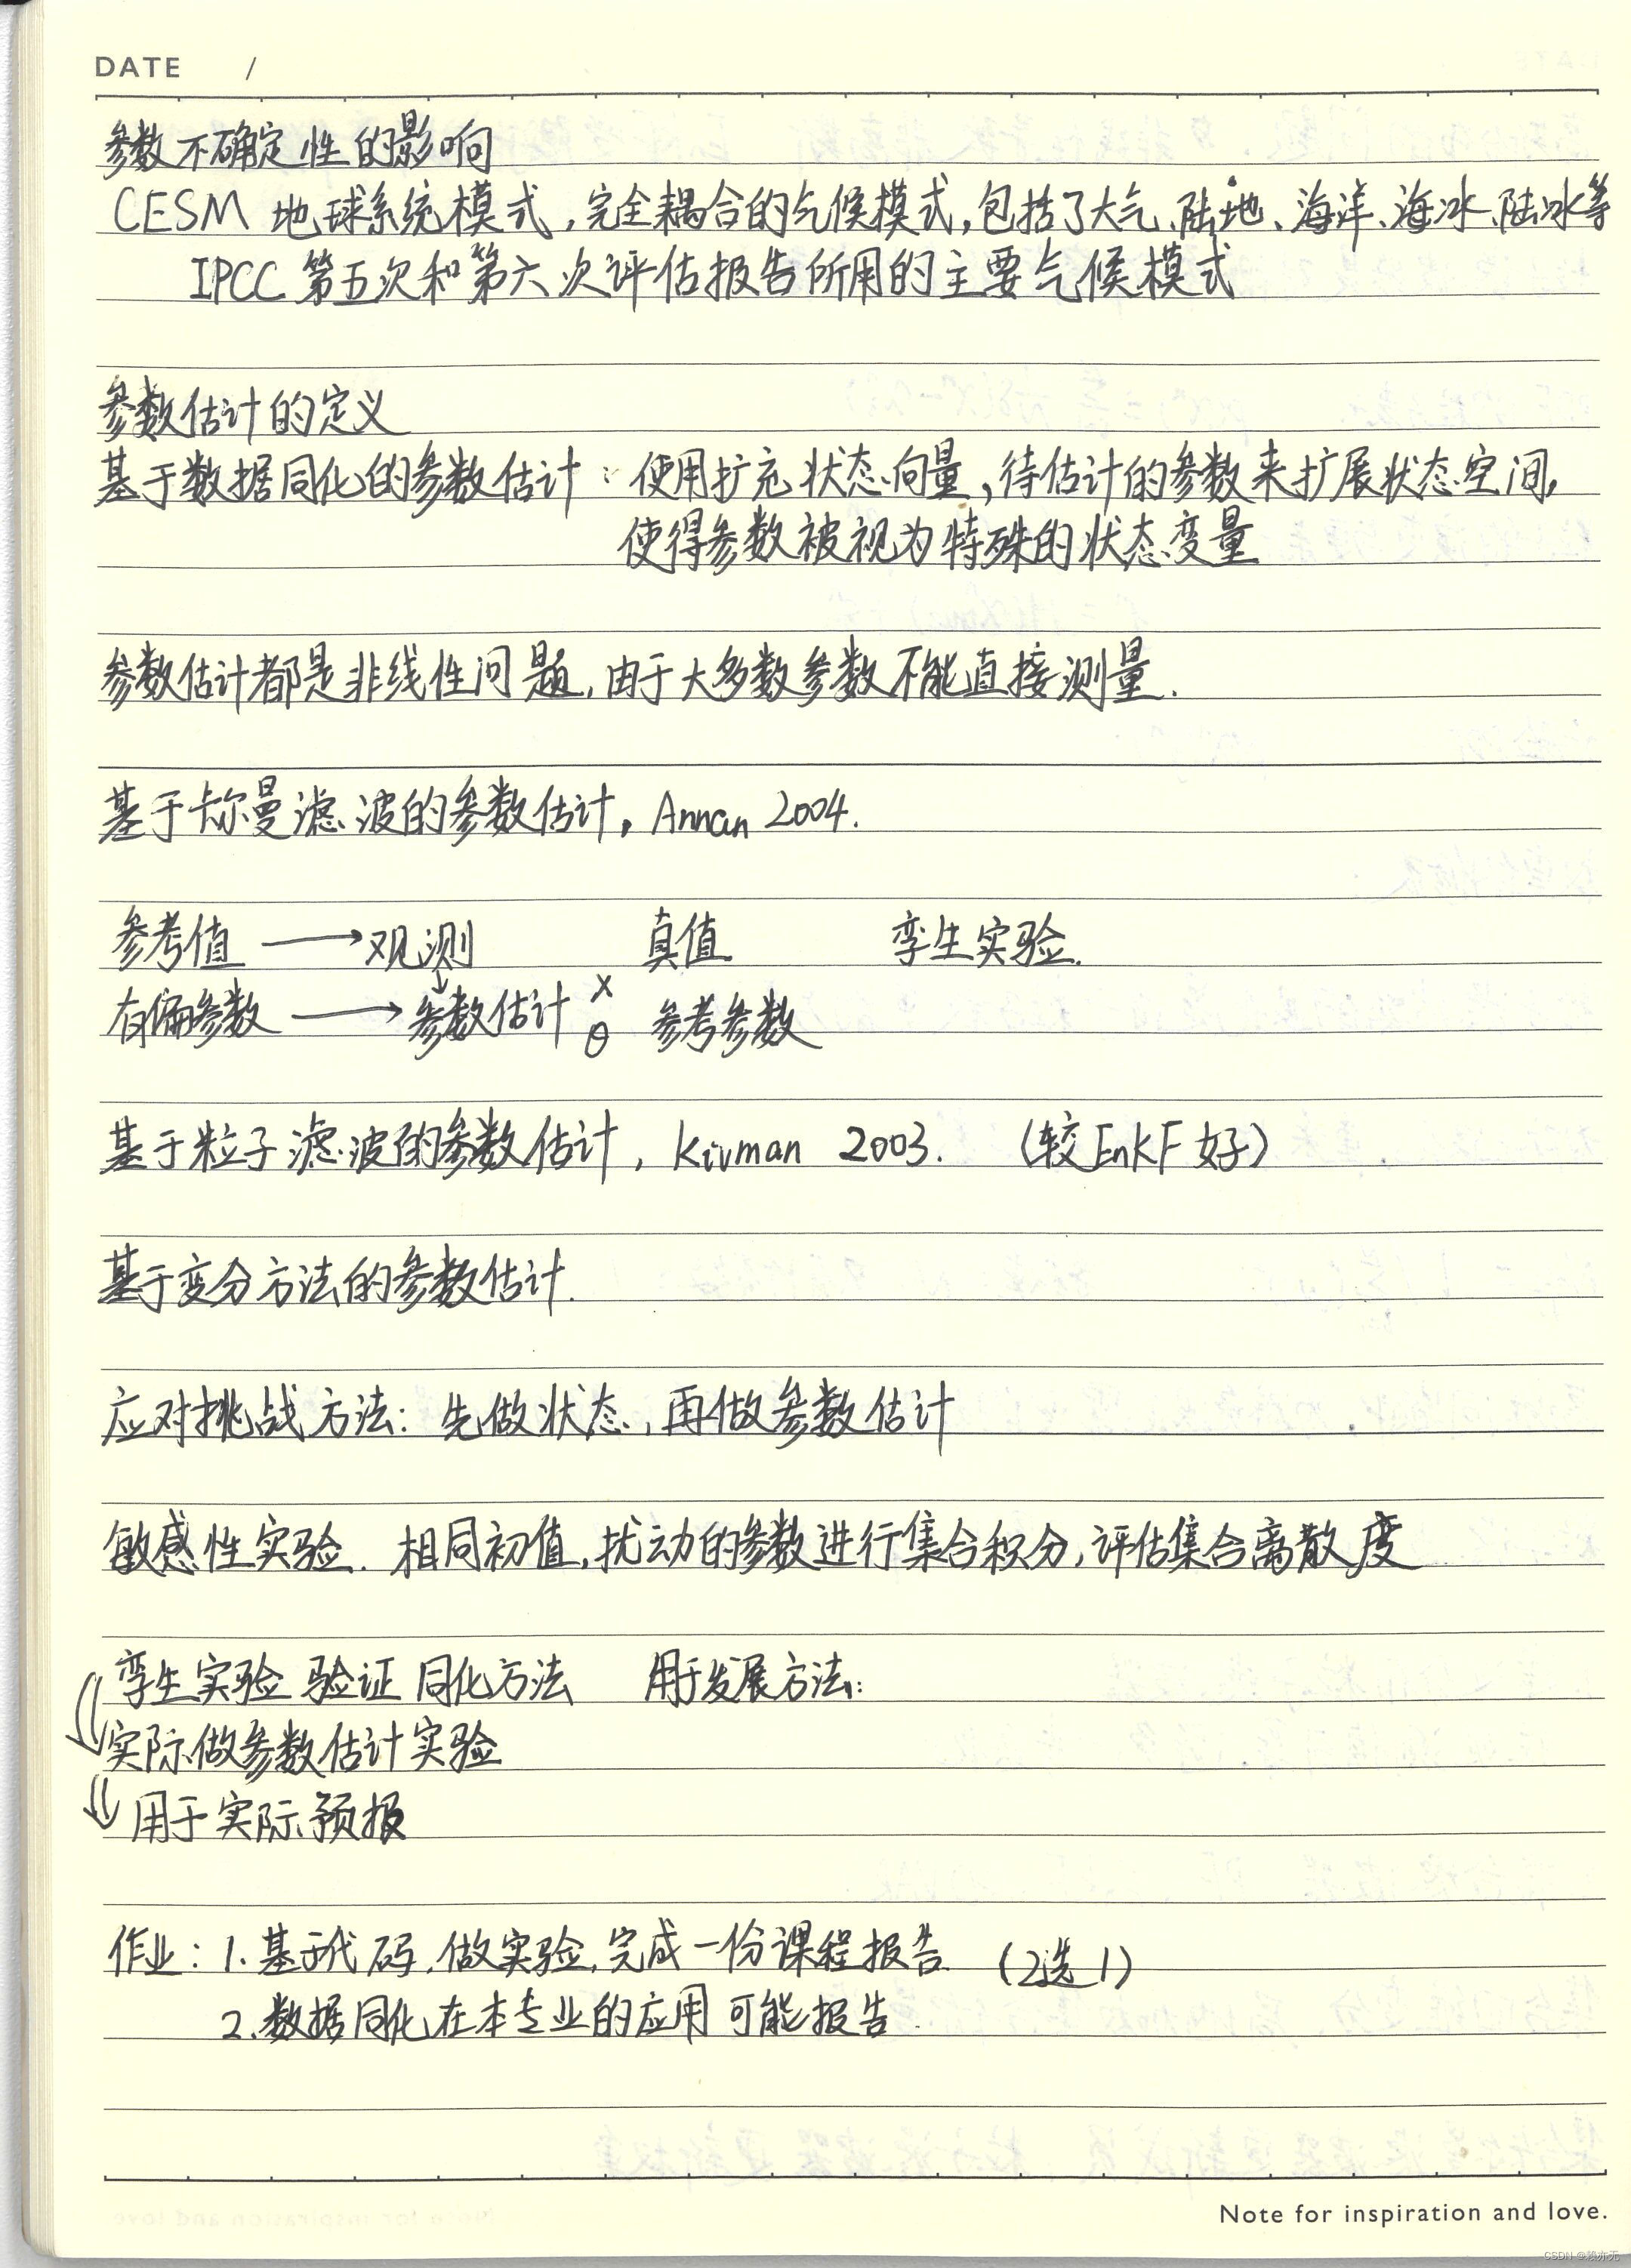 DATE /
参数不确定性的影响
CESM 地球系统模式，完全耦合的气候模式，包括了大气、陆地、海洋、海冰、陆冰等
IPCC 第五次和第六次评估报告所用的主要气候模式
参数估计的定义
基于数据同化的参数估计：使用扩充状态向量，待估计的参数来扩展状态空间，
使得参数被视为特殊的状态变量
参数估计都是非线性问题，由于大多数参数不能直接测量.
基于卡尔曼滤波的参数估计，Annan 2004.
参考值 → 观测 真值 孪生实验.
↓
有偏参数 → 参数估计 x θ 参考参数
基于粒子滤波的参数估计，Kivman 2003. （较EnKF好）
基于变分方法的参数估计.
应对挑战方法：先做状态，再做参数估计
敏感性实验. 相同初值，扰动的参数进行集合积分，评估集合离散度
孪生实验 验证 同化方法 用于发展方法
⇓ 实际做参数估计实验
⇓ 用于实际预报
作业：1. 基于代码，做实验，完成一份课程报告 （2选1）
2. 数据同化在本专业的应用可能报告
Note for inspiration and love.
CSDN @赖亦无